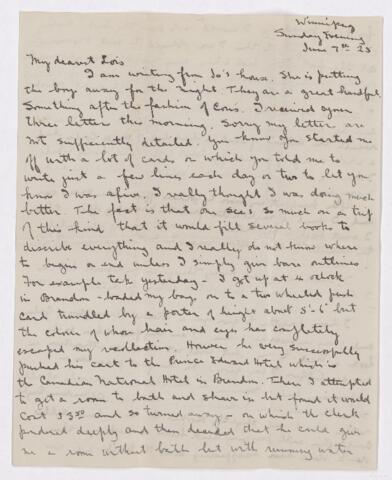 Winnipeg
Sunday Evening
June 7th 25
My dearest Lois
I am writing from Jo's house. She is putting
the boys away for the night. They are a great handful.
Something after the fashion of Con's. I received your
three letters this morning. Sorry my letters are
not sufficiently detailed. You know you started me
off with a lot of cards on which you told me to
write just a few lines each day or two to let you
know I was alive. I really thought I was doing much
better. The fact is that one sees so much on a trip
of this kind that it would fill several books to
describe everything and I really do not know where
to begin or end unless I simply give bare outlines
For example take yesterday - I got up at 4 o'clock
in Brandon - loaded my bags on to a two wheeled push
cart trundled by a porter of height about 5'-6" but
the colour of whose hair and eyes has completely
escaped my recollection. However he very successfully
pushed his cart to the Prince Edward Hotel which is
the Canadian National Hotel in Brandon. There I attempted
to get a room to bath and shave in but found it would
cost $3.50 and so turned away - on which the clerk
pondered deeply and then decided that he could give
me a room without bath but with running water